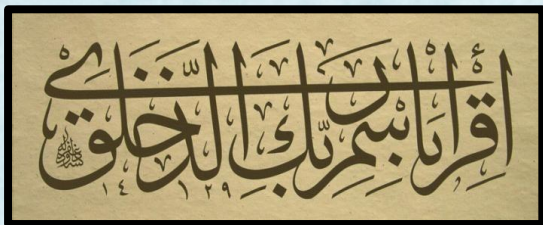 اقرأ باسم ربك الذي خلق
١٤٢٩